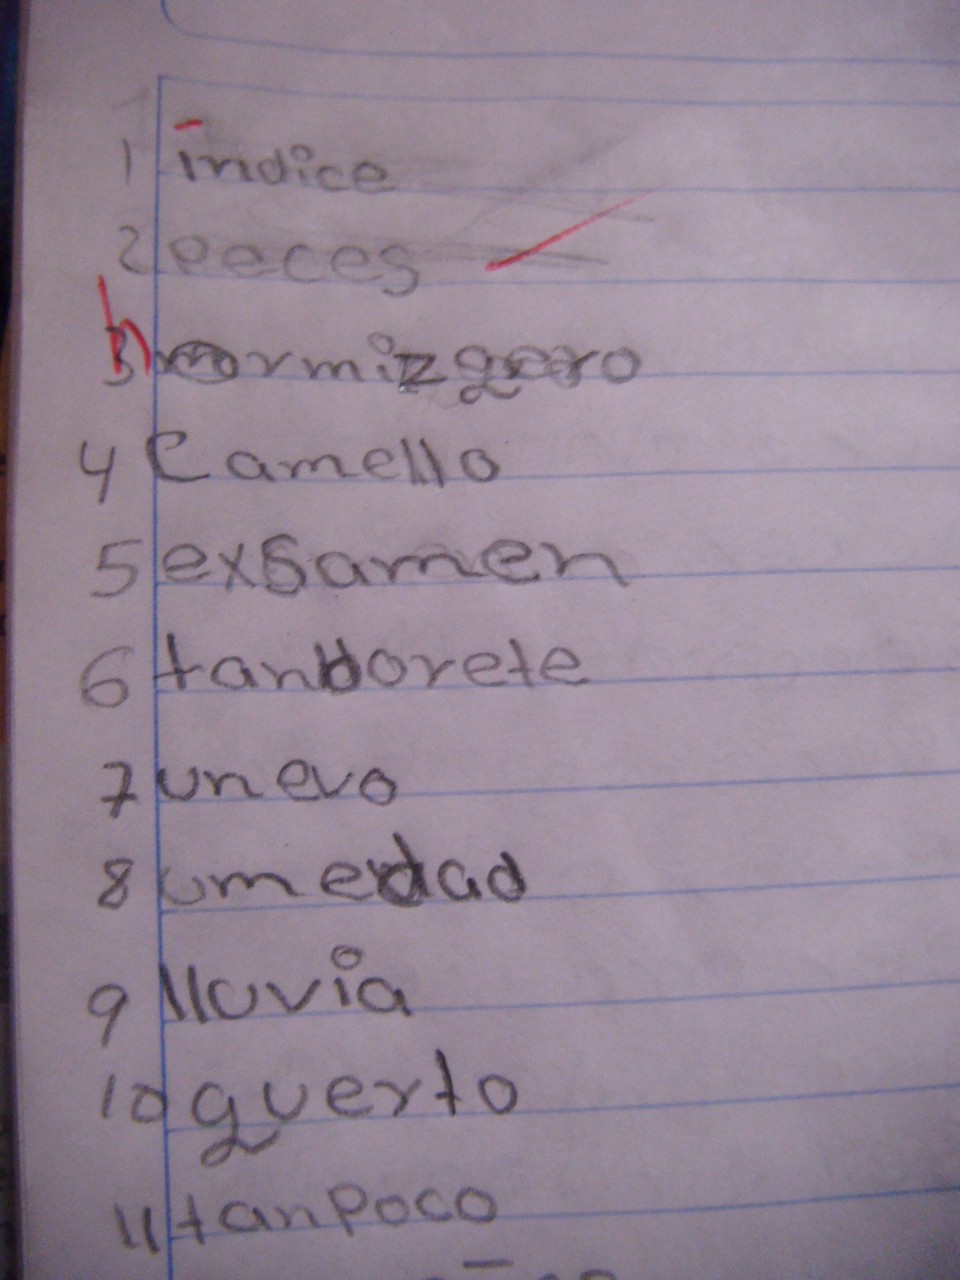 1 indice
2 peces
3 hormizgero
4 Camello
5 exsamen
6 tanborete
7 unevo
8 umedad
9 lluvia
10 guerto
11 tanpoco